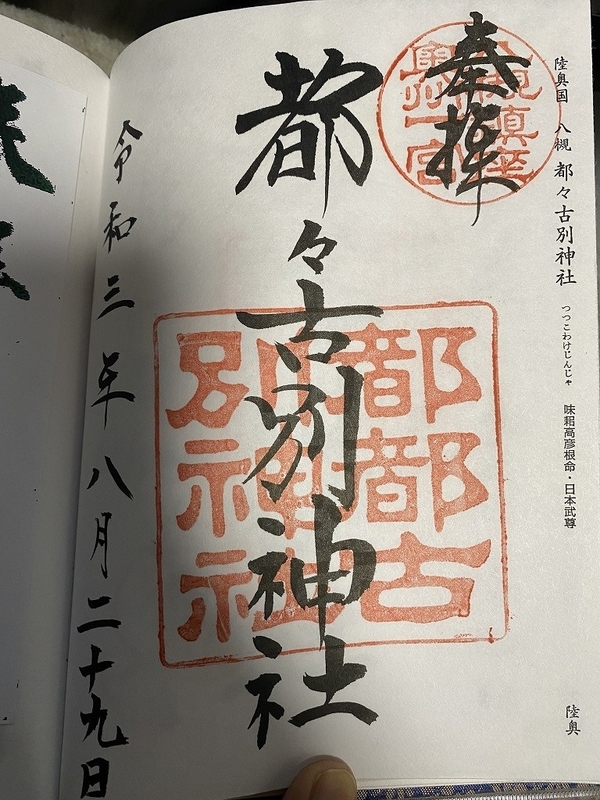 陸奥国 八槻 都々古別神社 つつこわけじんじゃ 味耜高彦根命・日本武尊
陸奥
奉拝
八槻鎮座
奥州一宮
都々古別神社
都都古
別神社
令和三年八月二十九日